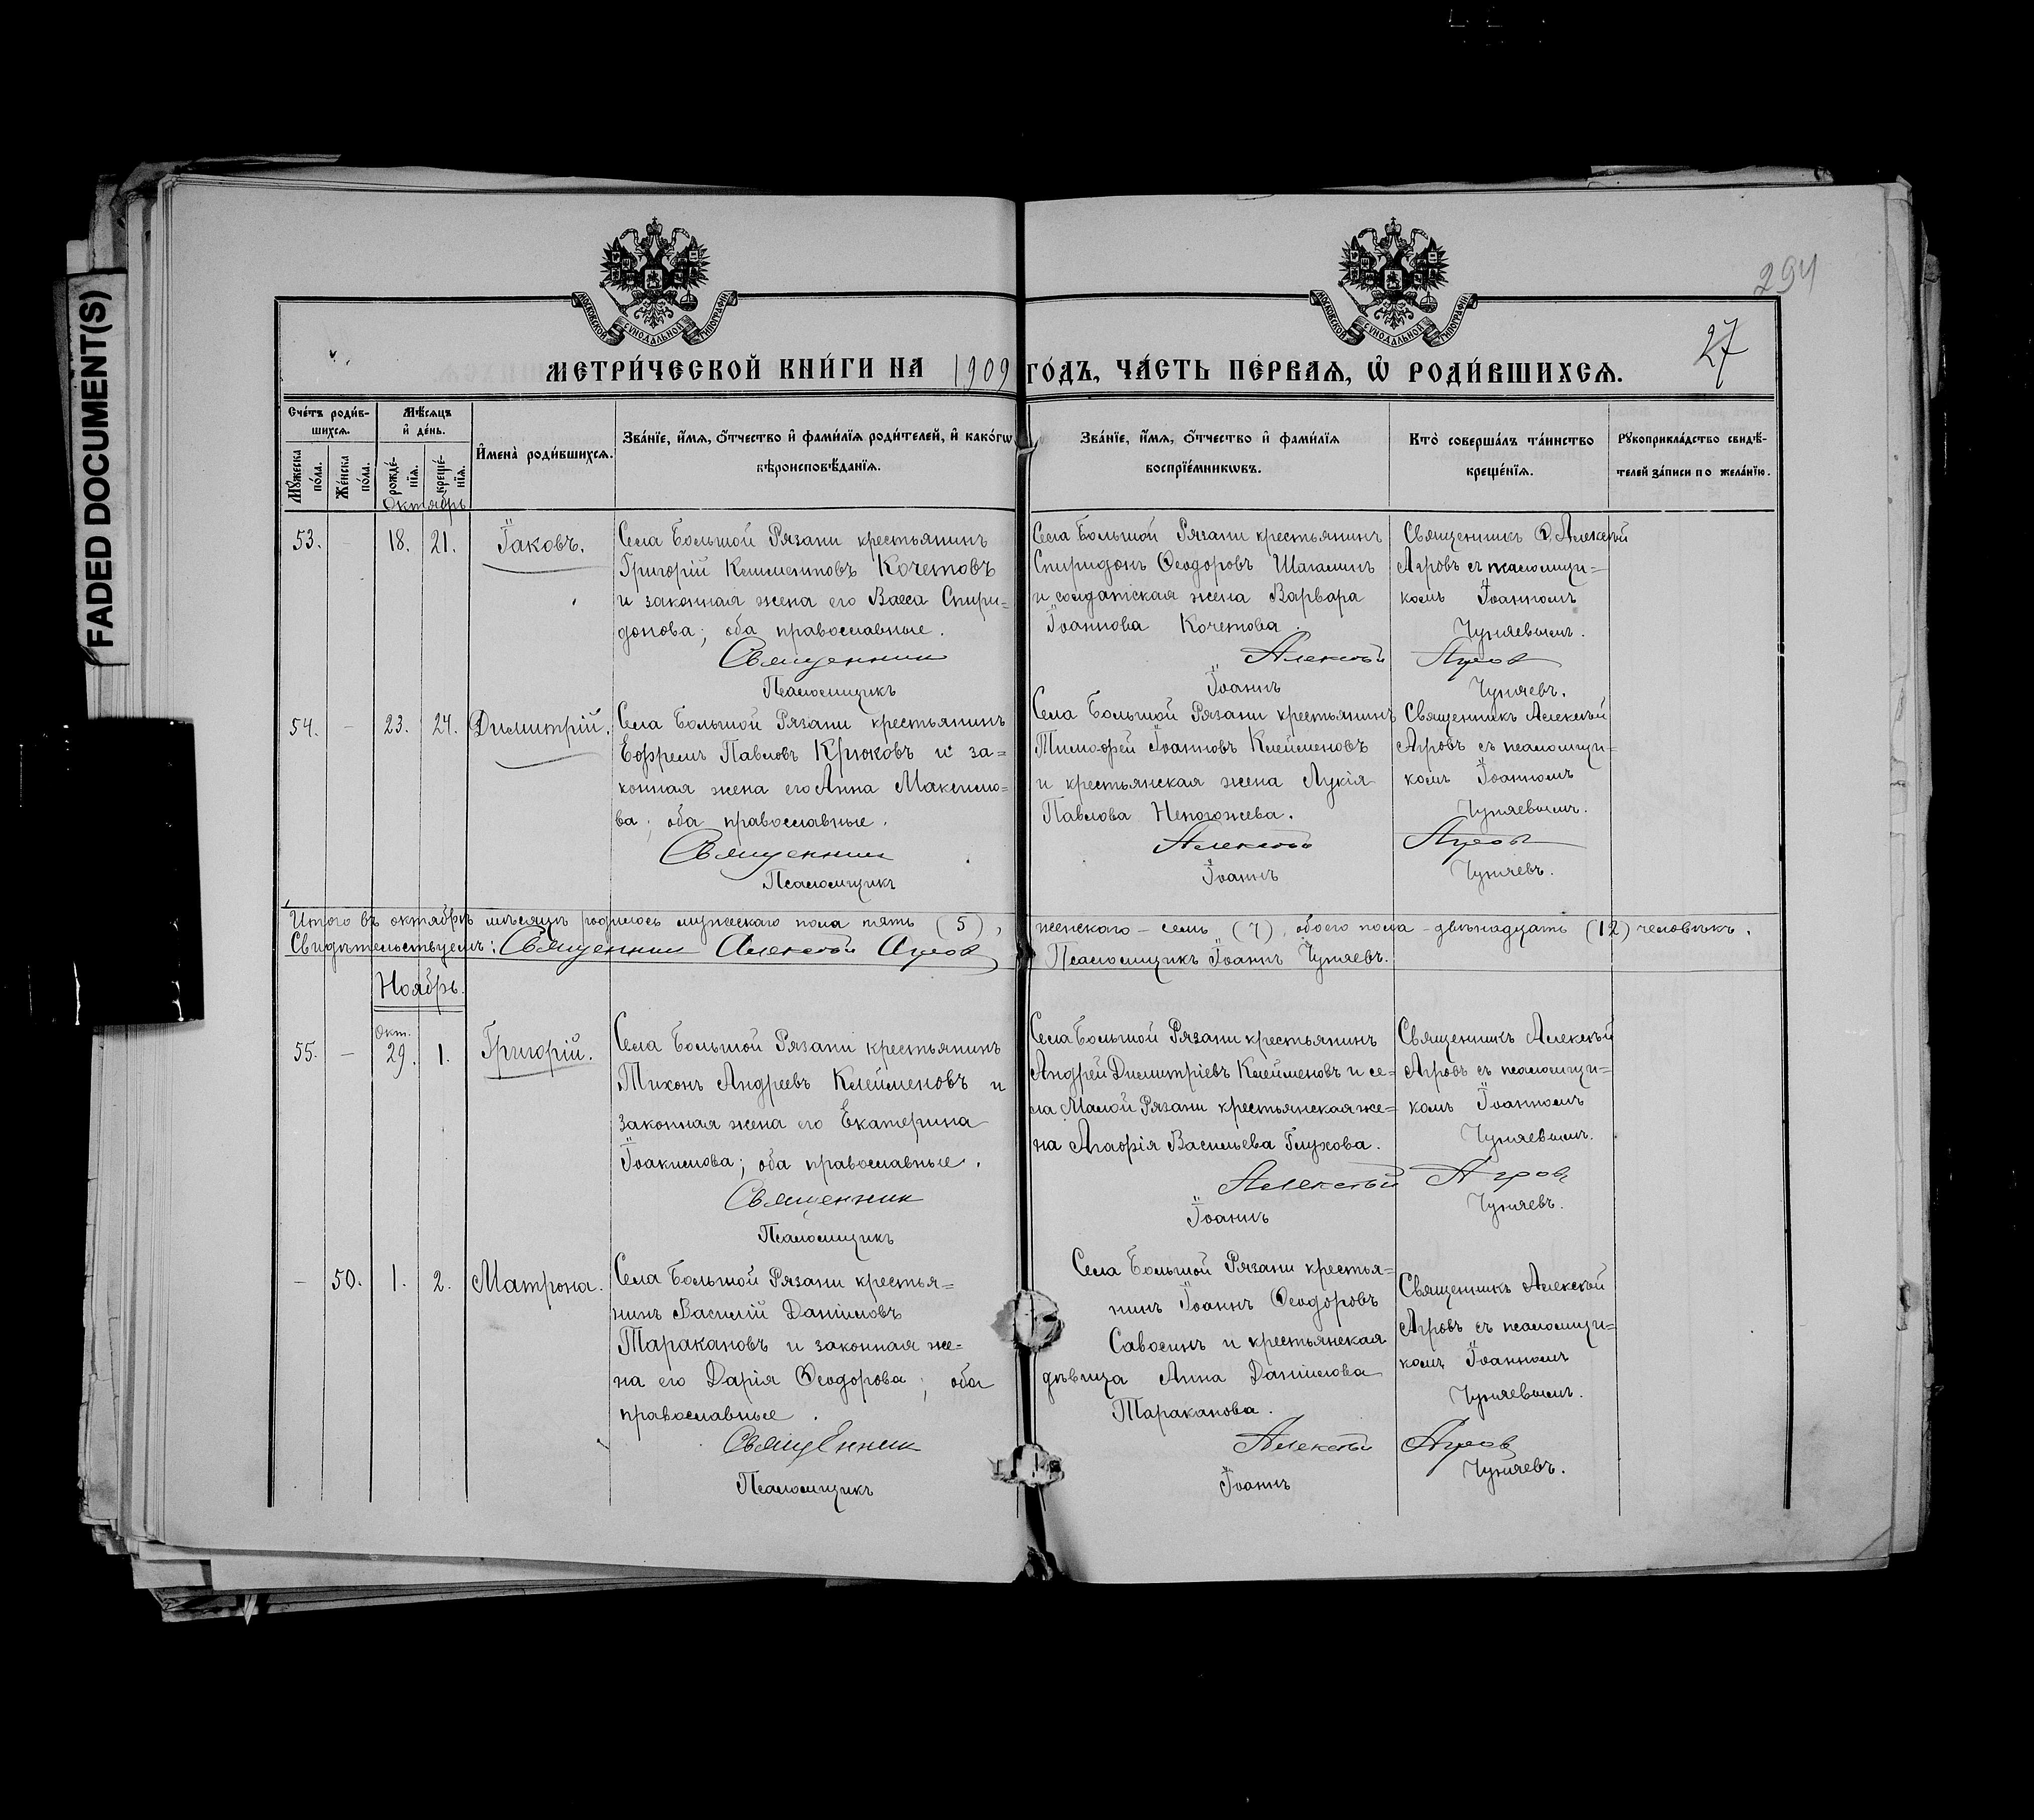 FADED DOCUMENT(S)
МОСКОВСКОЙ СУНОДАЛЬНОЙ ТИПОГРАФІИ
МОСКОВСКОЙ СУНОДАЛЬНОЙ ТИПОГРАФІИ
294
27
МЕТРИ́ЧЕСКОЙ КНИ́ГИ НА 1909 ГО́ДЪ, ЧА́СТЬ ПЕ́РВАѦ, Ѽ РОДИ́ВШИХСѦ.
Сче́тъ роди́в-
шихсѧ.
Мꙋ́жеска по́ла.
Же́нска по́ла.
Мѣ́сѧцъ
и҆ де́нь.
рожде́-
нїѧ.
креще́-
нїѧ.
И҆мена̀ роди́вшихсѧ.
Зва́нїе, и҆́мѧ, ѻ҆́тчество и҆ фами́лїѧ роди́телей, и҆ како́гѡ
вѣроисповѣ́данїѧ.
Зва́нїе, и҆́мѧ, ѻ҆́тчество и҆ фами́лїѧ
воспрїе́мникѡвъ.
Кто̀ соверша́лъ та́инство
креще́нїѧ.
Рꙋкоприкла́дство свидѣ́-
телей за́писи по жела́нїю.
Октябрь
53.
-
18.
21.
Іаковъ.
Села Большой Рязани крестьянинъ
Григорій Климентовъ Кочетовъ
и законная жена его Васса Спири=
донова; оба православные.
Священник
Псаломщикъ
Села Большой Рязани крестьянинъ
Спиридонъ Ѳеодоровъ Шагалинъ
и солдатская жена Варвара
Іоаннова Кочетова.
Алексѣй
Іоаннъ
Священникъ Алексѣй
Агровъ съ псаломщи=
комъ Іоанномъ
Чуняевымъ.
Агров
Чуняевъ.
54.
-
23.
24.
Димитрій.
Села Большой Рязани крестьянинъ
Ефремъ Павловъ Крюковъ и за=
конная жена его Анна Максимо=
ва; оба православные.
Священник
Псаломщикъ
Села Большой Рязани крестьянинъ
Тимофей Іоанновъ Клейменовъ
и крестьянская жена Лукія
Павлова Непогожева.
Алексѣй
Іоаннъ
Священникъ Алексѣй
Агровъ съ псаломщи=
комъ Іоанномъ
Чуняевымъ.
Агров
Чуняевъ.
Итого въ октябрѣ мѣсяцѣ родилось мужескаго пола пять (5), женскаго - семь (7), обоего пола - двѣнадцать (12) человѣкъ.
Свидѣтельствуемъ: Священник Алексѣй Агров Псаломщикъ Іоаннъ Чуняевъ.
Ноябрь.
55.
-
Окт.
29.
1.
Григорій.
Села Большой Рязани крестьянинъ
Тихонъ Андреевъ Клейменовъ и
законная жена его Екатерина
Іоакимова; оба православные.
Священник
Псаломщикъ
Села Большой Рязани крестьянинъ
Андрей Димитріевъ Клейменовъ и се=
ла Малой Рязани крестьянская же=
на Агафія Васильева Глухова.
Алексѣй
Іоаннъ
Священникъ Алексѣй
Агровъ съ псаломщи=
комъ Іоанномъ
Чуняевымъ.
Агров
Чуняевъ.
-
50.
1.
2.
Матрона.
Села Большой Рязани крестья=
нинъ Василій Даніиловъ
Таракановъ и законная же=
на его Дарія Ѳеодорова; оба
православные.
Священник
Псаломщикъ
Села Большой Рязани крестья=
нинъ Іоаннъ Ѳеодоровъ
Савосинъ и крестьянская
дѣвица Анна Даніилова
Тараканова.
Алексѣй
Іоаннъ
Священникъ Алексѣй
Агровъ съ псаломщи=
комъ Іоанномъ
Чуняевымъ.
Агров
Чуняевъ.